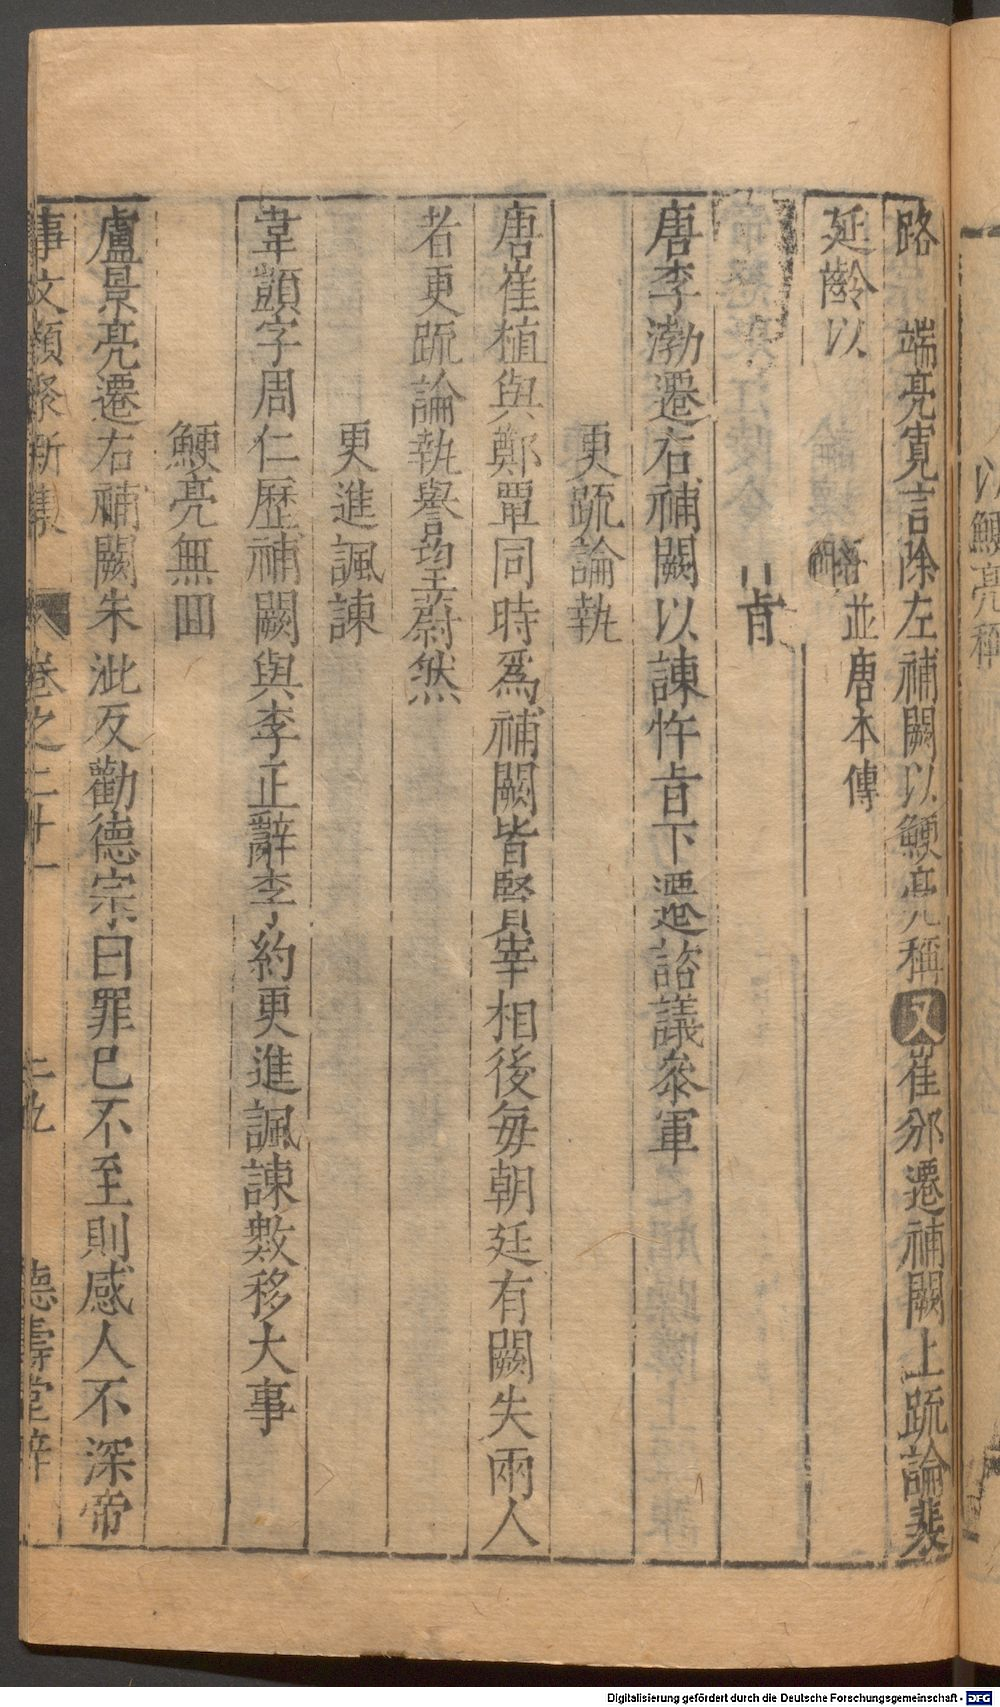 路　端亮寬言除左補闕以鯁亮稱又崔邠遷補闕上䟽論裴
延齡以　　　並唐本傳
旨
唐李渤遷右補闕以諫忤旨下遷諮議叅軍
更䟽論執
唐崔植與鄭覃同時爲補闕皆賢宰相後每朝廷有闕失兩人
者更䟽論執譽望蔚然
更進諷諫
韋顗字周仁歷補闕與李正辭李約更進諷諫數移大事
鯁亮無回
盧景亮遷右補闕朱泚反勸德宗曰罪已不至則感人不深帝
事文類聚新集　卷之二十一　二九　德壽堂梓
以鯁亮稱
Digitalisierung gefördert durch die Deutsche Forschungsgemeinschaft - DFG